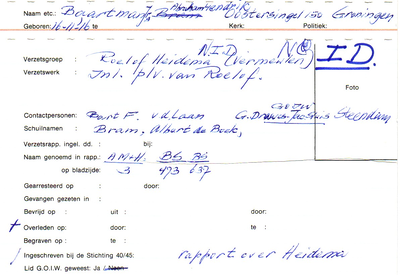 Naam etc.: Baartman, Abraham Hendrik Oostersingel 150 Groningen
Geboren: 16-11-'26 te Kerk: Politiek:
N.I.D. I.D.
Verzetsgroep : Roelof Heidema (Vermeulen)
Verzetswerk : Inl. plv. van Roelof.
Foto
Contactpersonen: Bart F. v.d. Laan G.
Schuilnaam : Bram, Albert de Boek,
Verzetsrapp. ingel. dd. : bij:
Naam genoemd in rapp.: AM+H. BS AS
op bladzijde: 3 473 637
Gearresteerd op : door:
Gevangen gezeten in :
Bevrijd op : uit : door:
† Overleden op : door: te :
Begraven op : te :
Ingeschreven bij de Stichting 40/45: rapport over Heidema
Lid G.O.I.W. geweest: Ja / Neen